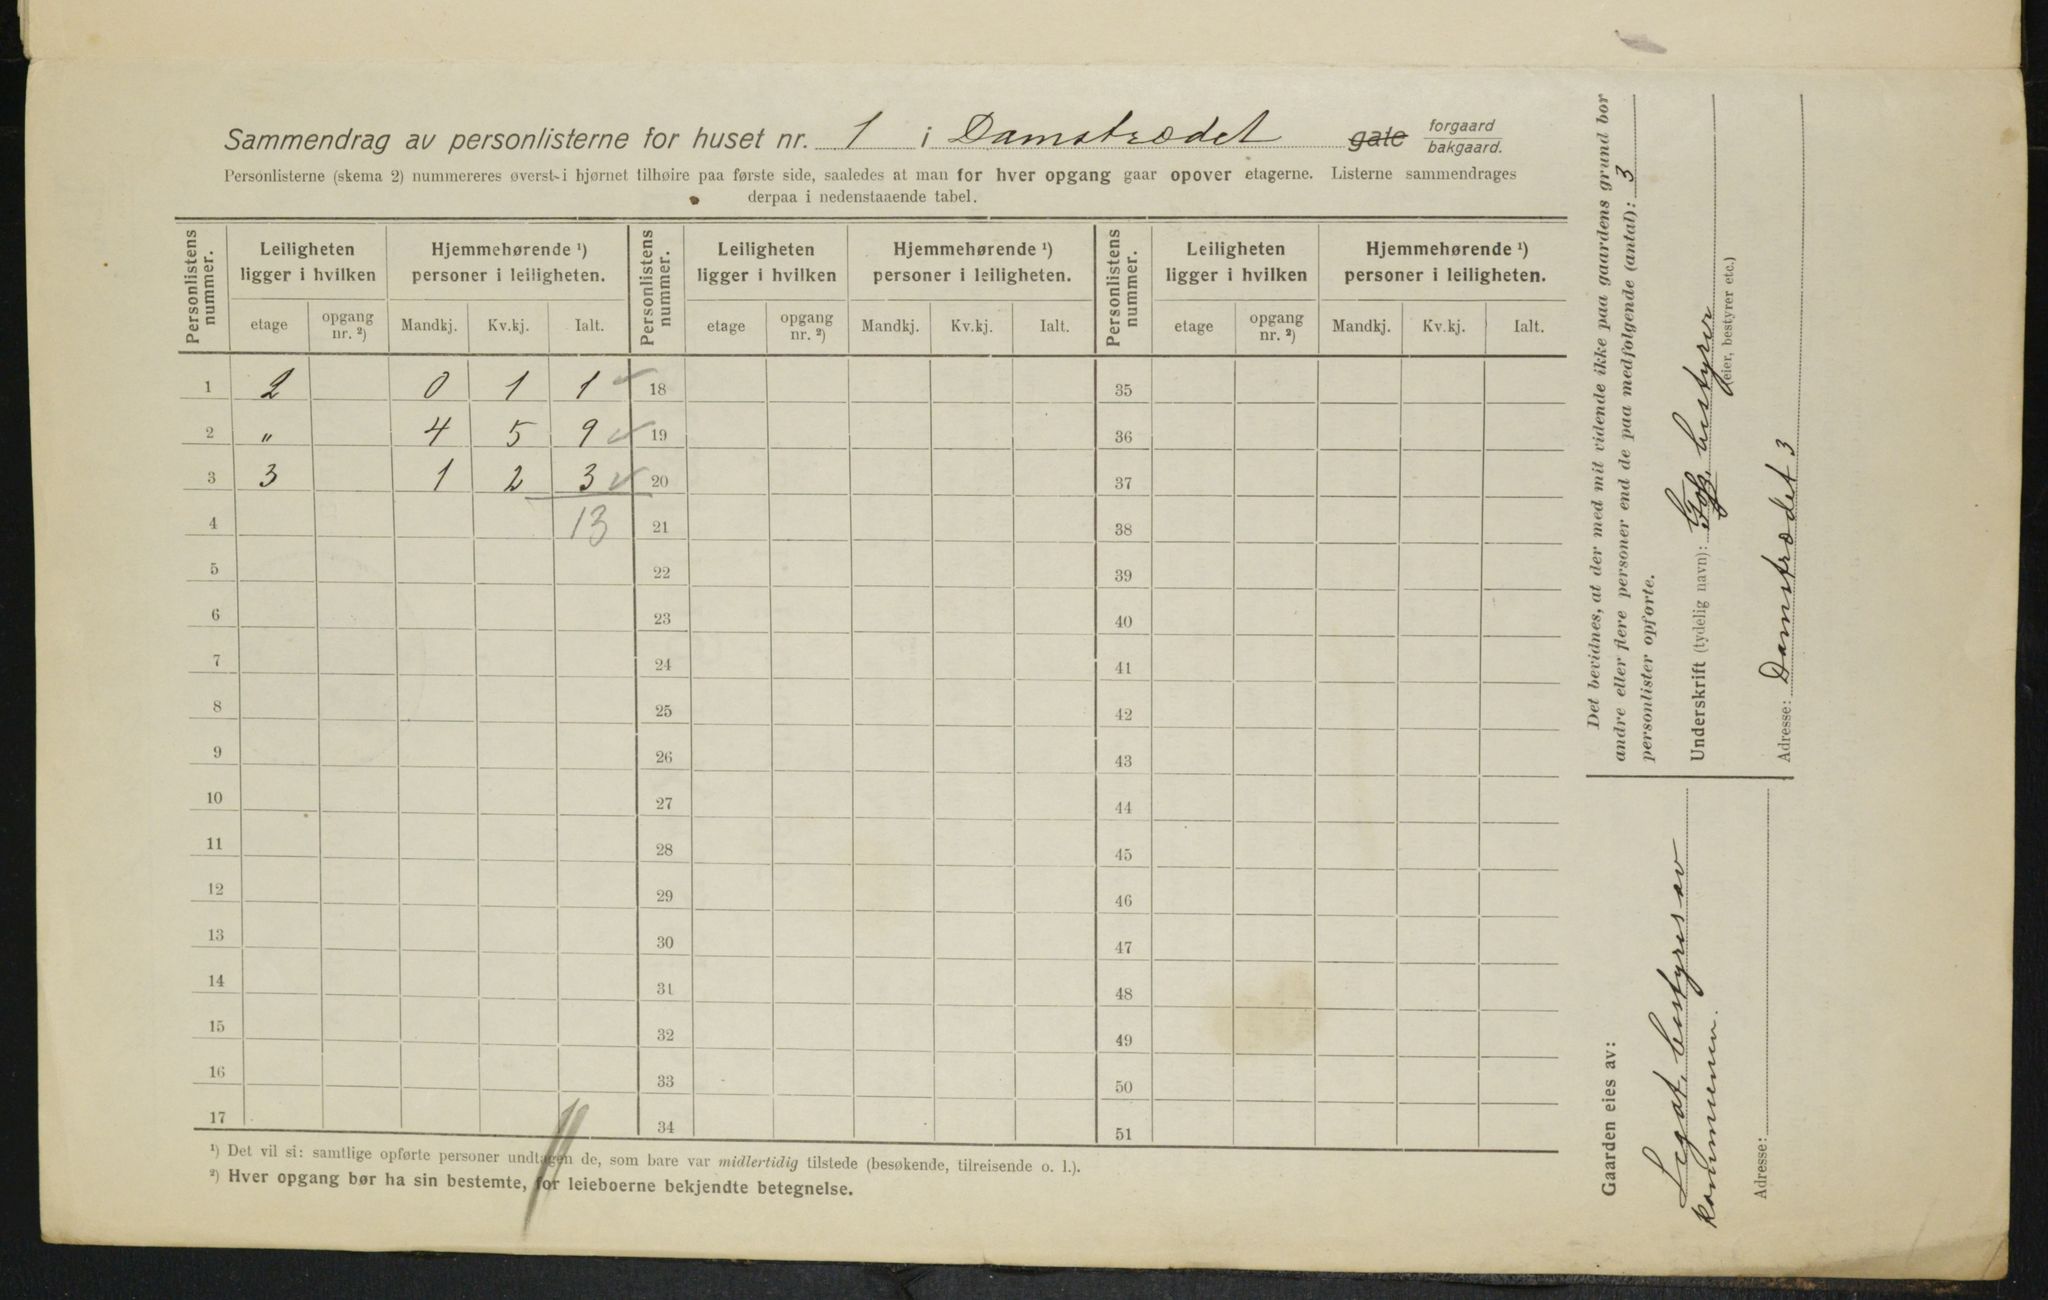 Sammendrag av personlisterne for huset nr. 1 i Damstrædet gate forgaard bakgaard.
Personlisterne (skema 2) nummereres øverst i hjørnet tilhøire paa første side, saaledes at man for hver opgang gaar opover etagerne. Listerne sammendrages
derpaa i nedenstaaende tabel.
Personlistens nummer. Leiligheten ligger i hvilken Hjemmehørende ¹) personer i leiligheten. Personlistens nummer. Leiligheten ligger i hvilken Hjemmehørende ¹) personer i leiligheten. Personlistens nummer. Leiligheten ligger i hvilken Hjemmehørende ¹) personer i leiligheten.
etage opgang nr. ²) Mandkj. Kv.kj. Ialt. etage opgang nr. ²) Mandkj. Kv.kj. Ialt. etage opgang nr. ²) Mandkj. Kv.kj. Ialt.
1 2 0 1 1 18 35
2 " 4 5 9 19 36
3 3 1 2 3 20 37
4 13 21 38
5 22 39
6 23 40
7 24 41
8 25 42
9 26 43
10 27 44
11 28 45
12 29 46
13 30 47
14 31 48
15 32 49
16 33 50
17 34 51
¹) Det vil si: samtlige opførte personer undtagen de, som bare var midlertidig tilstede (besøkende, tilreisende o. l.).
²) Hver opgang bør ha sin bestemte, for leieboerne bekjendte betegnelse.
Det bevidnes, at der med mit vidende ikke paa gaardens grund bor
andre eller flere personer end de paa medfølgende (antal): 3
personlister opførte.
Underskrift (tydelig navn): bestyrer
(eier, bestyrer etc.)
Adresse: Damstrædet 3
Gaarden eies av:
Legat, bestyres av
kommunen.
Adresse: